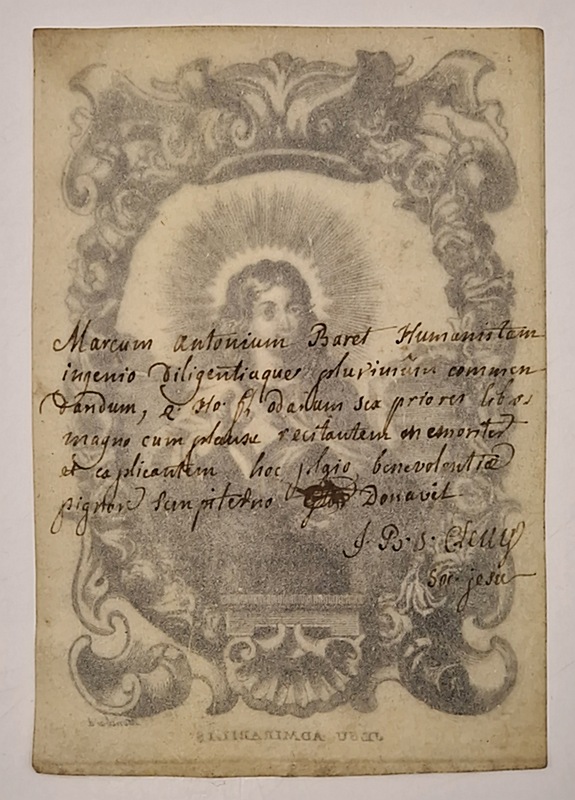 Marcum antonium Baret Humanistam
ingenio diligentiaque plurimùm commen-
dandum, odarum sex priores libros
magno cum plausu recitantem memoriter
et explicantem hoc benevolentiæ
pignore sempiterno Donavit
J. B. S.
Soc. jesu
JESU ADMIRABILIS